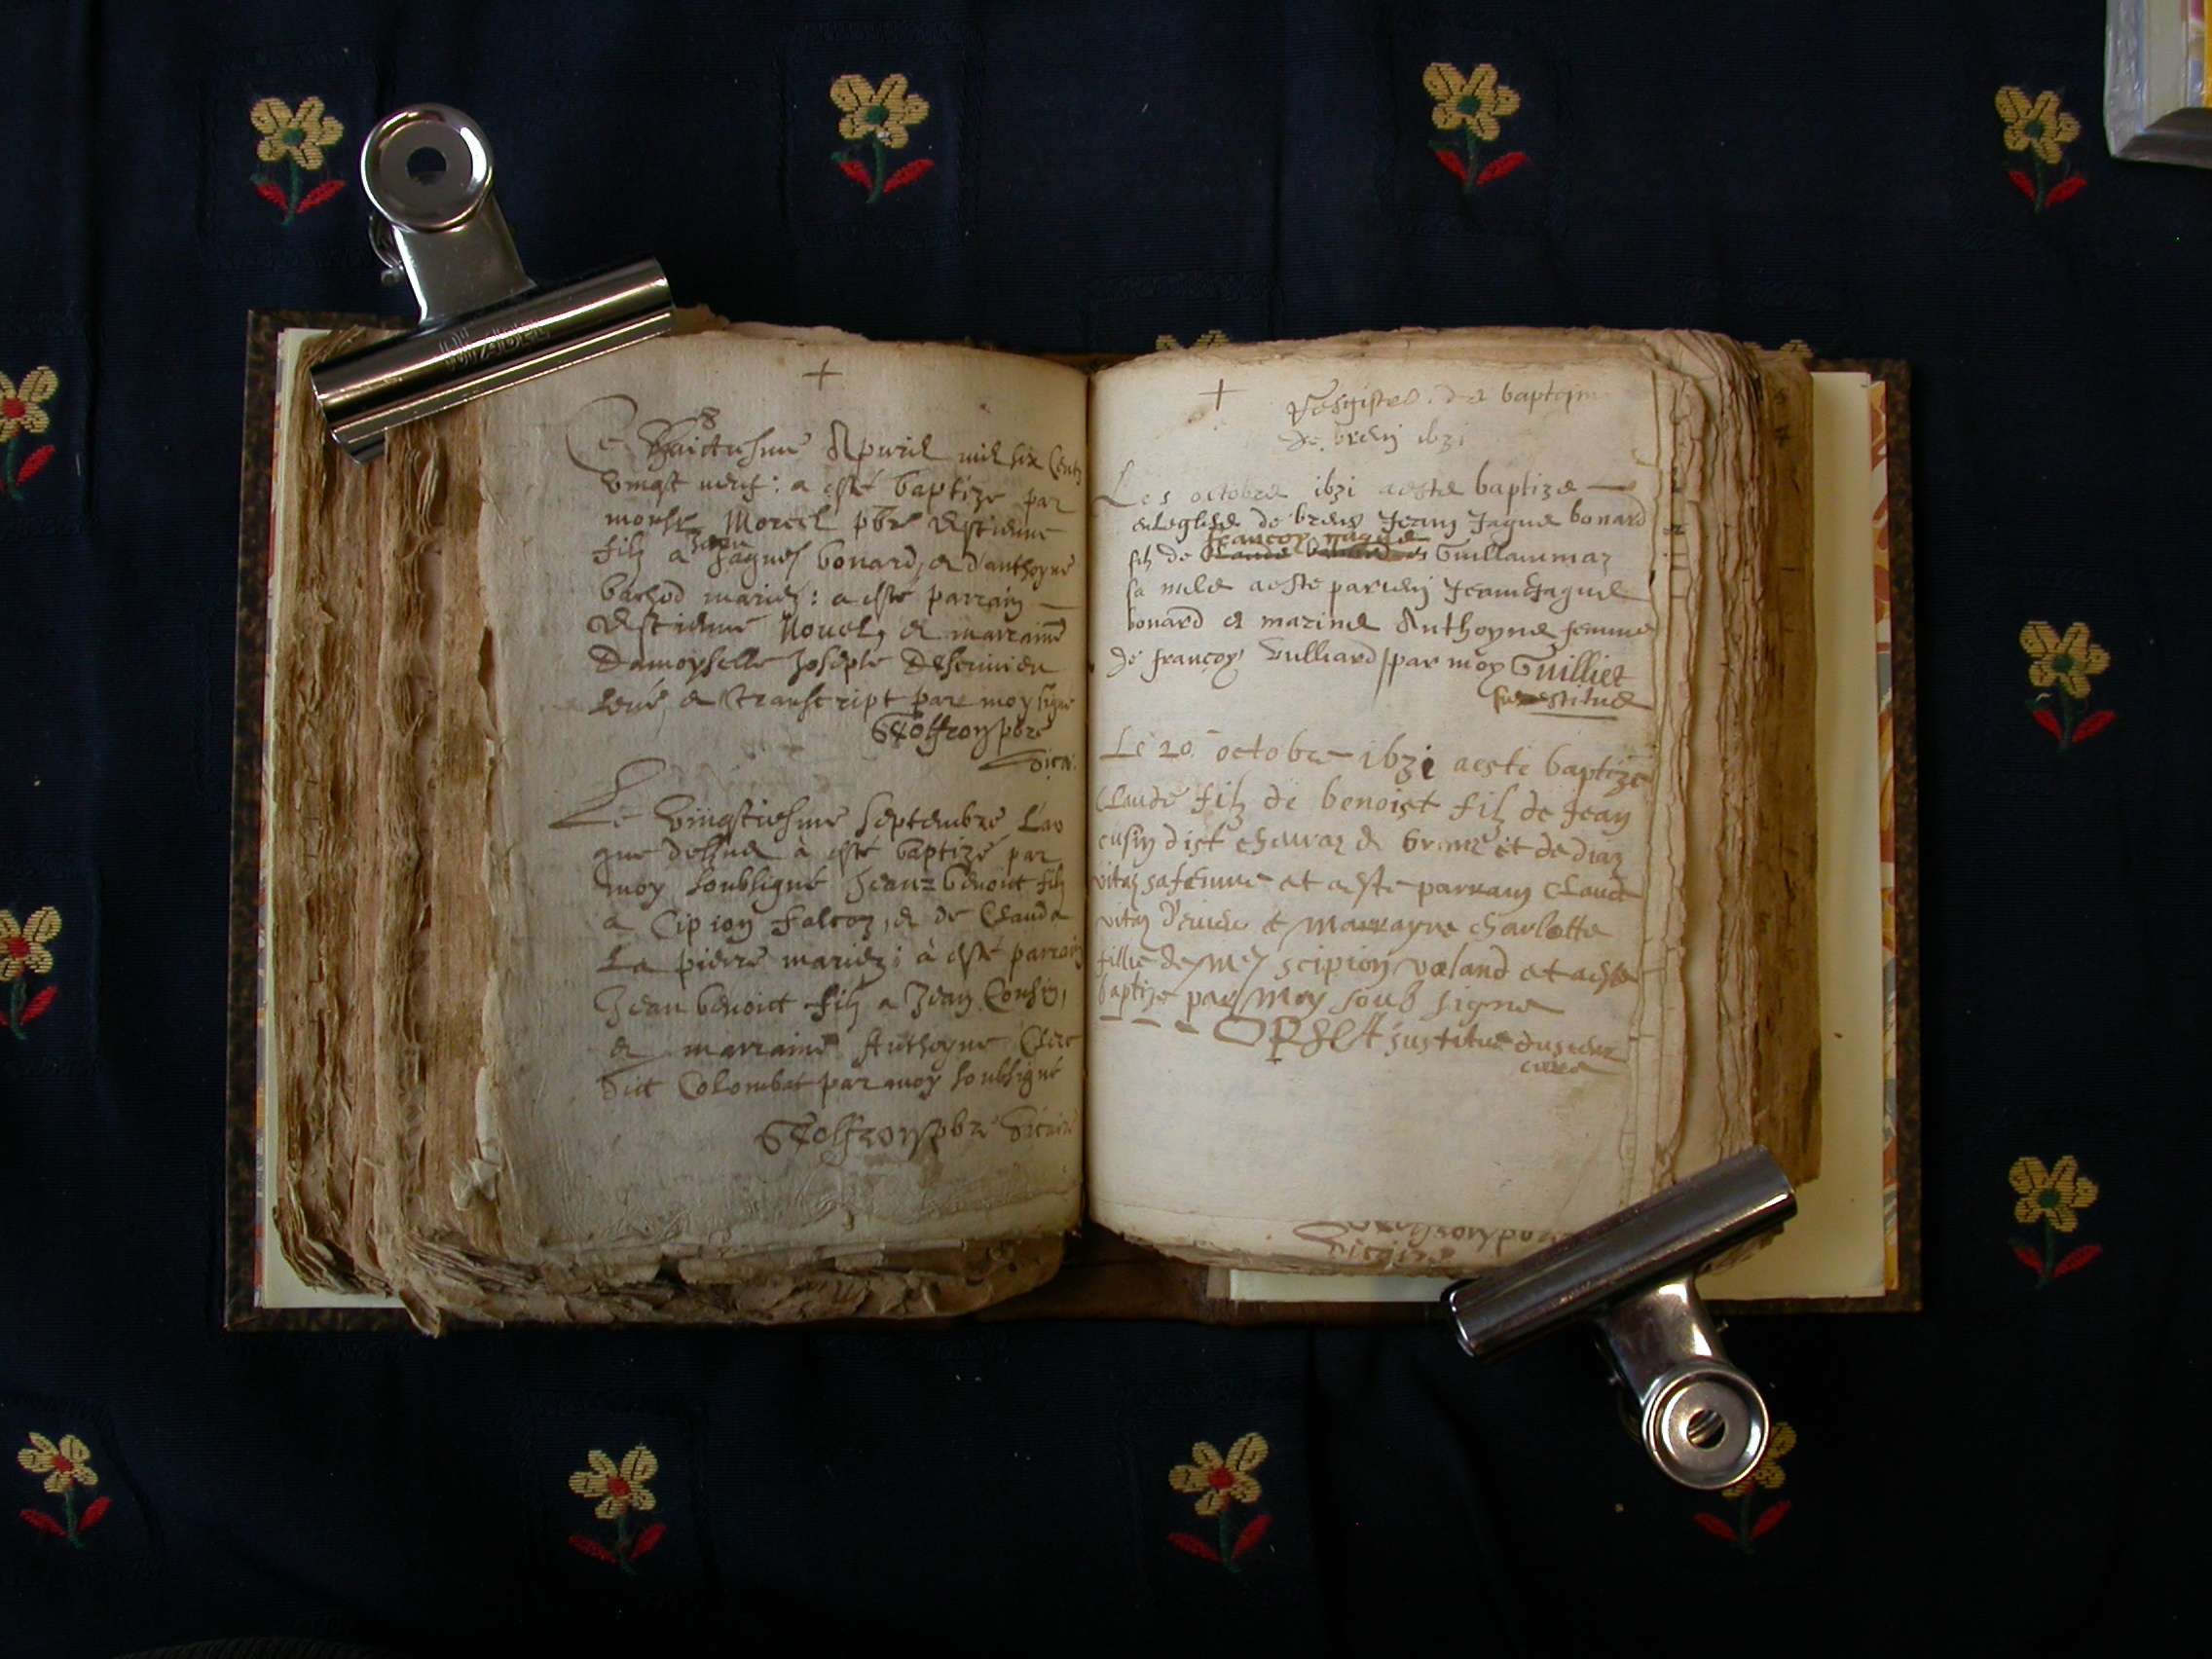 +
8
Le huictiesme Apvril mil six Centz
vingt neuf: a esté baptize par
monsr Morcel pbre Estienne
Jean
filz a Jaques bonard, et d'anthoyne
bachod mariez: a esté parrain
Estienne Novel, et marraine
Damoyselle Josepte
Levé, et transcript pare moy signe
pbre
vicai:
Le vingtiesme Septembre L'an
que dessue à esté baptizé par
moy soubsigné Jean benoict filz
a Cipion falcoz, et de Clauda
La pierre mariez: à esté parrain
Jean benoict filz a Jean Cousin,
et marraine Anthoyne Clerc
dict Colombet par moy soubsigné
pbre vicaire
+ Resgistre de baptesm
de bren 1631
Le 5 octobre 1631 a esté baptize
en leglise de bren Jean Jaque bonard
francoy
filz de Claude et Guillaumaz
sa a esté parien Jean Jaque
bonard et marine Anthoyne femme
de francoy Vulliard par moy Guilliet
substitue
Le 20 octobre 1631 a esté baptize
Claude filz de benoist filz de Jean
cusin dist et de diaz
vitaz sa femme et a este parrain Claude
vitaz et marrayne charlotte
fillie de scipion valand et a este
baptize par moy soub signe
sustitue du sieur
cure